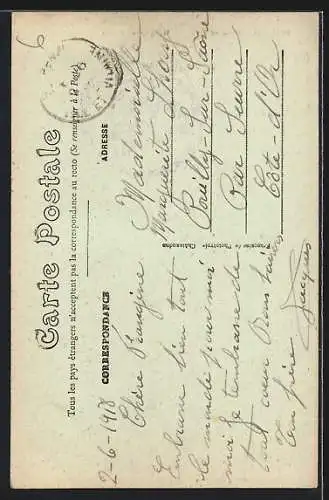 Carte Postale
Tous les pays étrangers n'acceptent pas la correspondance au recto (Se renseigner à la Poste)
CORRESPONDANCE
ADRESSE
2-6-1918
Chère Frangine
Embrasse bien tout
le monde pour moi
moi je t'embrasse de
tout cœur Bons baisers
Ton frère
Jacques
Mademoiselle
Marguerite
Pouilly-Sur-Saône
Par Seurre
Côte-d'Or